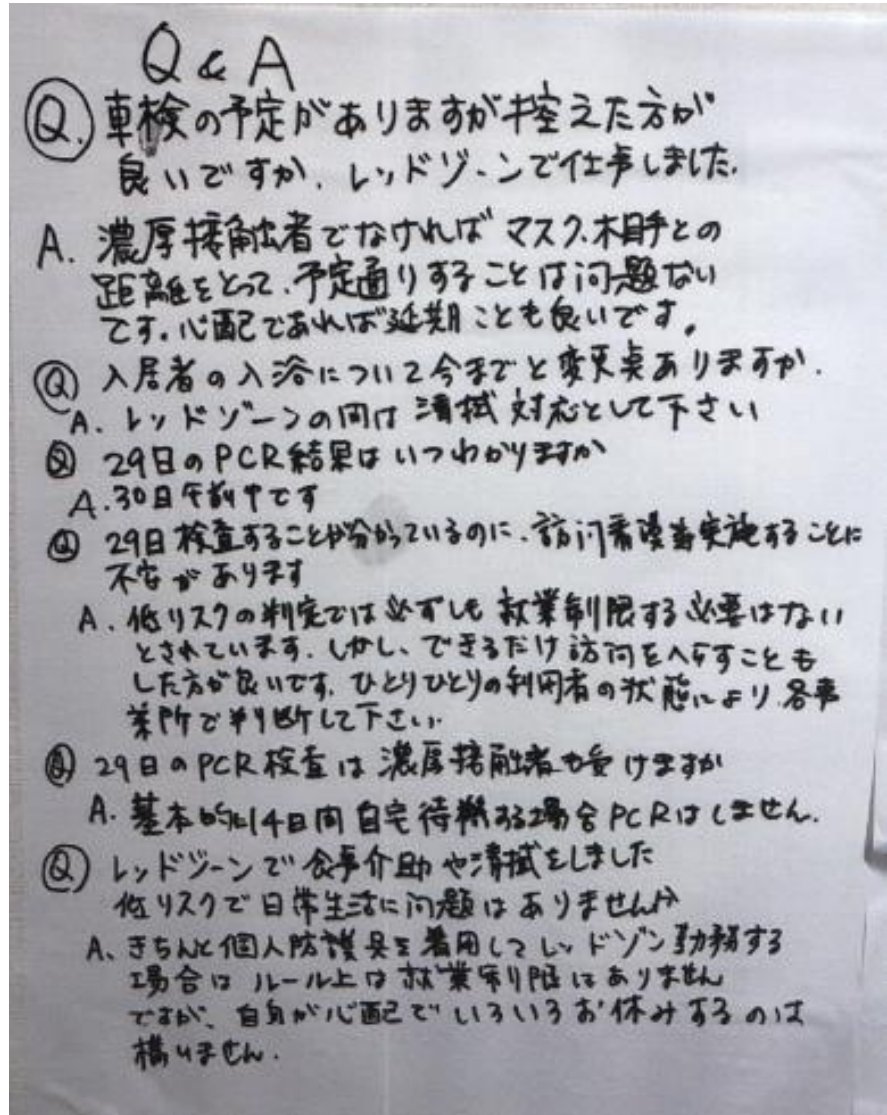 Q & A
Q. 車検の予定がありますが控えた方が
良いですか、レッドゾーンで仕事しました.
A. 濃厚接触者でなければマスク、相手との
距離をとって、予定通りすることは问題ない
です。心配であれば延期ことも良いです。
Q 入居者の入浴について今までと変更点ありますか.
A. レッドゾーンの间は清拭対応として下さい
Q 29日のPCR結果はいつわかりますか
A. 30日午前中です
Q 29日検査することが分かっているのに、訪问看護等実施することに
不安があります
A. 低リスクの判定では必ずしも就業制限する必要はない
とされています. しかし、できるだけ訪问をへらすことも
した方が良いです. ひとりひとりの利用者の状態により、各事
業所で判断して下さい.
Q 29日のPCR検査は濃厚接触者も受けますか
A. 基本的に14日间自宅待機する場合PCRはしません.
Q レッドゾーンで食事介助や清拭をしました
低リスクで日常生活に问題はありませんか
A、きちんと個人防護具を着用してレッドゾン勤務する
場合はルール上は就業制限はありません
ですが、自身が心配でいろいろお休みするのは
構いません.